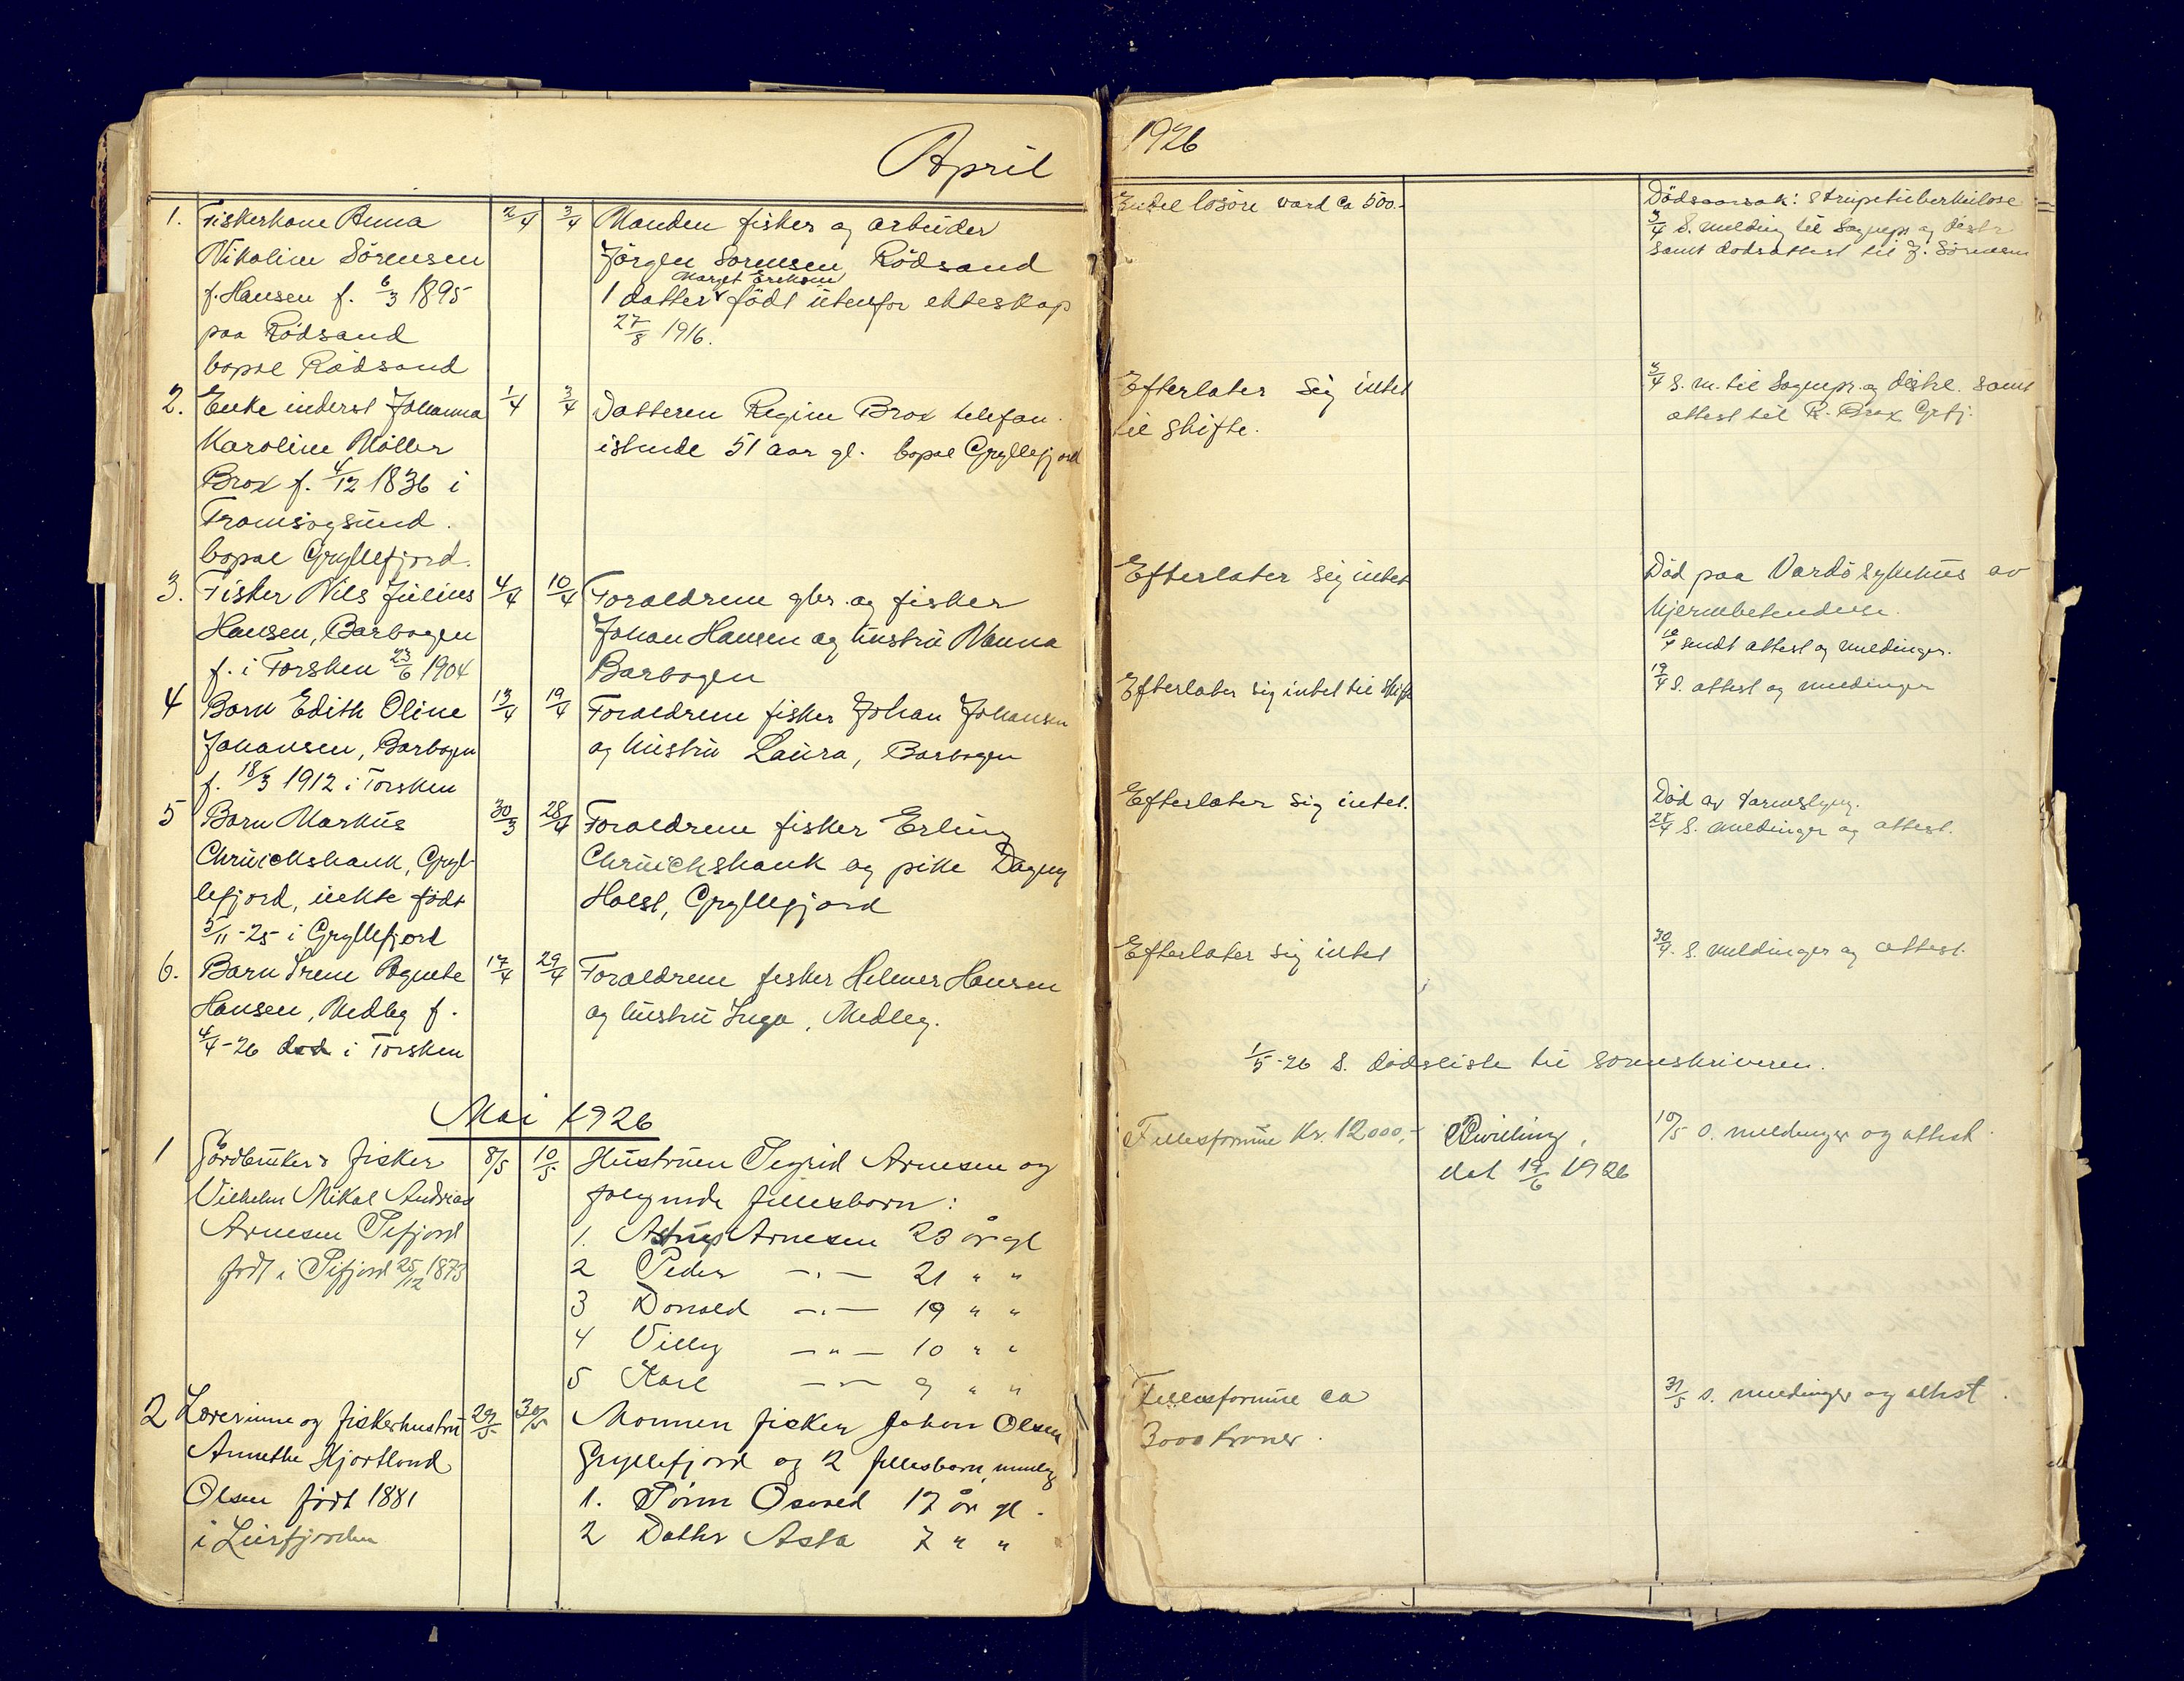 April
1. Fiskerkone Anna 2/4 3/4 Manden fisker og arbeider
Nikoline Sörensen Jörgen Sörensen, Rödsand
Marget Eriksen
f. Hansen f. 6/3 1895 1 datter født utenfor ekteskap
paa Rödsand 27/8 1916.
bopæl Rödsand
2. Enke inderst Johanna 1/4 3/4 Datteren Regine Brox telefon-
Karoline Möller istinde 51 aar gl. bopæl Gryllefjord
Brox f. 4/12 1836 i
Tromsøysund.
bopæl Gryllefjord.
3. Fisker Nils Julius 4/4 10/4 Forældrene gbr. og fisker
Hansen, Barbogen Johan Hansen og hustru Nanna
f. i Torsken 23/6 1904 Barbogen
4 Barn Edith Oline 13/4 19/4 Forældrene fisker Johan Johansen
Johansen, Barbogen og hustru Laura, Barbogen
f. 18/3 1912 i Torsken
5 Barn Markus 30/3 28/4 Forældrene fisker Erling
Chruickshank, Gryl- Chruickshank og pike Dagny
lefjord, uekte født Holst, Gryllefjord
5/11-25 i Gryllefjord
6. Barn Irene Agnete 17/4 29/4 Forældrene fisker Helmer Hansen
Hansen, Medby f. og hustru Inga, Medby.
4/4-26 död i Torsken
Mai 1926
1 Jordbruker & fisker 8/5 10/5 Hustruen Sigrid Arnesen og
Vilhelm Mikal Andreas følgende fellesbarn:
Arnesen Sifjord 1. Astrup Arnesen 23 år gl
født i Sifjord 25/12 1873 2 Peder —.— 21 " "
3 Donald —.— 19 " "
4 Villy —"— 10 " "
5 Karl —"— 9 " "
2 Lærerinne og fiskerhustru 29/5 30/5 Mannen fisker Johan Olsen
Annethe Hjortland Gryllefjord og 2 fellesbarn, nemlig
Olsen født 1881 1. Sønn Osvald 17 år gl.
i Leirfjorden 2 Datter Asta 7 " "
1926
Endel losöre værd ca 500.- Dödsaarsak: Strupetuberkulose
3/4 S. melding til Sognepr og distr
samt dødsattest til J. Sörensen
Efterlater sig intet 3/4 S. m. til Sognepr. og distrl. samt
til skifte. attest til R. Brox Grfj.
Efterlater sig intet Död paa Vardö sykehus av
hjernebetendelse.
10/4 sendt attest og meldinger.
Efterlater sig intet til skifte 19/4 S. attest og meldinger
Efterlater sig intet. Död av tarmslyng.
28/4 S. meldinger og attest.
Efterlater sig intet 30/4. S. meldinger og attest.
1/5-26 S. dödsliste til sorenskriveren.
Fellesformue Kr. 12000,- Bevilling, 10/5 s. meldinger og attest.
dat 19/6 1926
Fellesformue ca 31/5 s. meldinger og attest.
3000 kroner.